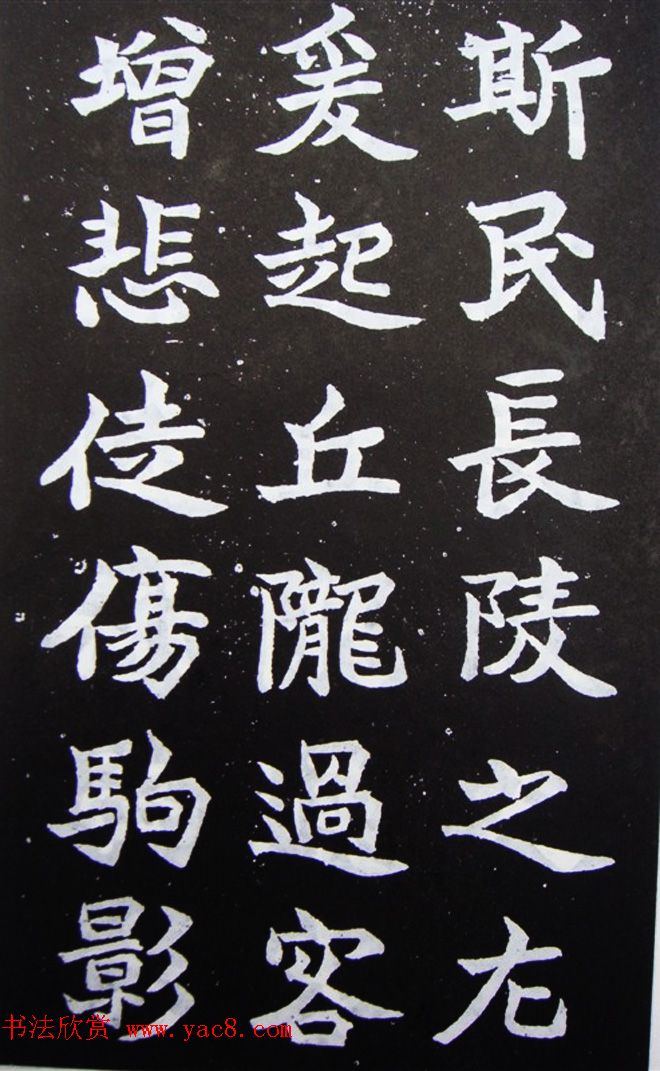 斯民長陵之尢
爰起丘隴過客
增悲徒傷駒影
书法欣赏 www.yac8.com